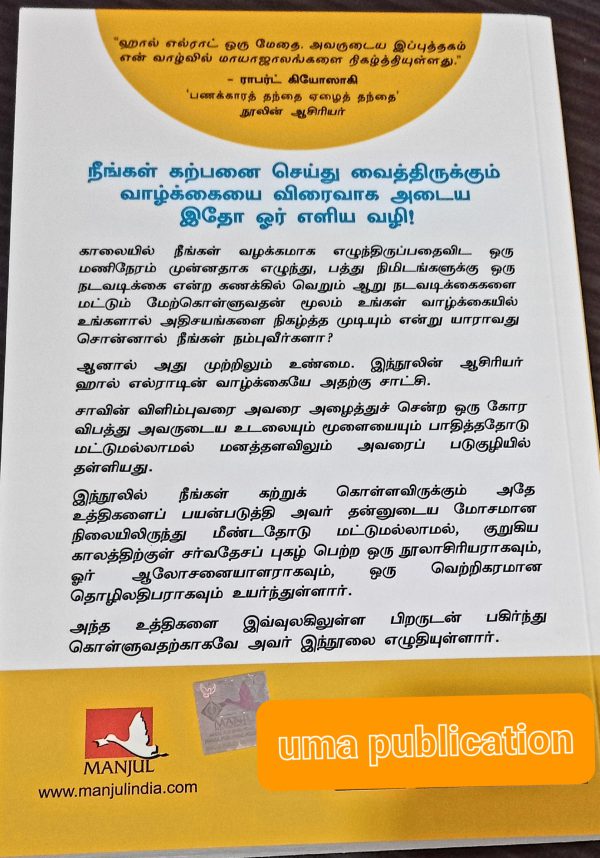 "ஹால் எல்ராட் ஒரு மேதை. அவருடைய இப்புத்தகம்
என் வாழ்வில் மாயாஜாலங்களை நிகழ்த்தியுள்ளது."
– ராபர்ட் கியோஸாகி
'பணக்காரத் தந்தை ஏழைத் தந்தை'
நூலின் ஆசிரியர்
நீங்கள் கற்பனை செய்து வைத்திருக்கும்
வாழ்க்கையை விரைவாக அடைய
இதோ ஓர் எளிய வழி!
காலையில் நீங்கள் வழக்கமாக எழுந்திருப்பதைவிட ஒரு
மணிநேரம் முன்னதாக எழுந்து, பத்து நிமிடங்களுக்கு ஒரு
நடவடிக்கை என்ற கணக்கில் வெறும் ஆறு நடவடிக்கைகளை
மட்டும் மேற்கொள்ளுவதன் மூலம் உங்கள் வாழ்க்கையில்
உங்களால் அதிசயங்களை நிகழ்த்த முடியும் என்று யாராவது
சொன்னால் நீங்கள் நம்புவீர்களா?
ஆனால் அது முற்றிலும் உண்மை. இந்நூலின் ஆசிரியர்
ஹால் எல்ராடின் வாழ்க்கையே அதற்கு சாட்சி.
சாவின் விளிம்புவரை அவரை அழைத்துச் சென்ற ஒரு கோர
விபத்து அவருடைய உடலையும் மூளையையும் பாதித்ததோடு
மட்டுமல்லாமல் மனத்தளவிலும் அவரைப் படுகுழியில்
தள்ளியது.
இந்நூலில் நீங்கள் கற்றுக் கொள்ளவிருக்கும் அதே
உத்திகளைப் பயன்படுத்தி அவர் தன்னுடைய மோசமான
நிலையிலிருந்து மீண்டதோடு மட்டுமல்லாமல், குறுகிய
காலத்திற்குள் சர்வதேசப் புகழ் பெற்ற ஒரு நூலாசிரியராகவும்,
ஓர் ஆலோசனையாளராகவும், ஒரு வெற்றிகரமான
தொழிலதிபராகவும் உயர்ந்துள்ளார்.
அந்த உத்திகளை இவ்வுலகிலுள்ள பிறருடன் பகிர்ந்து
கொள்ளுவதற்காகவே அவர் இந்நூலை எழுதியுள்ளார்.
MANJUL
www.manjulindia.com
MANJUL
uma publication